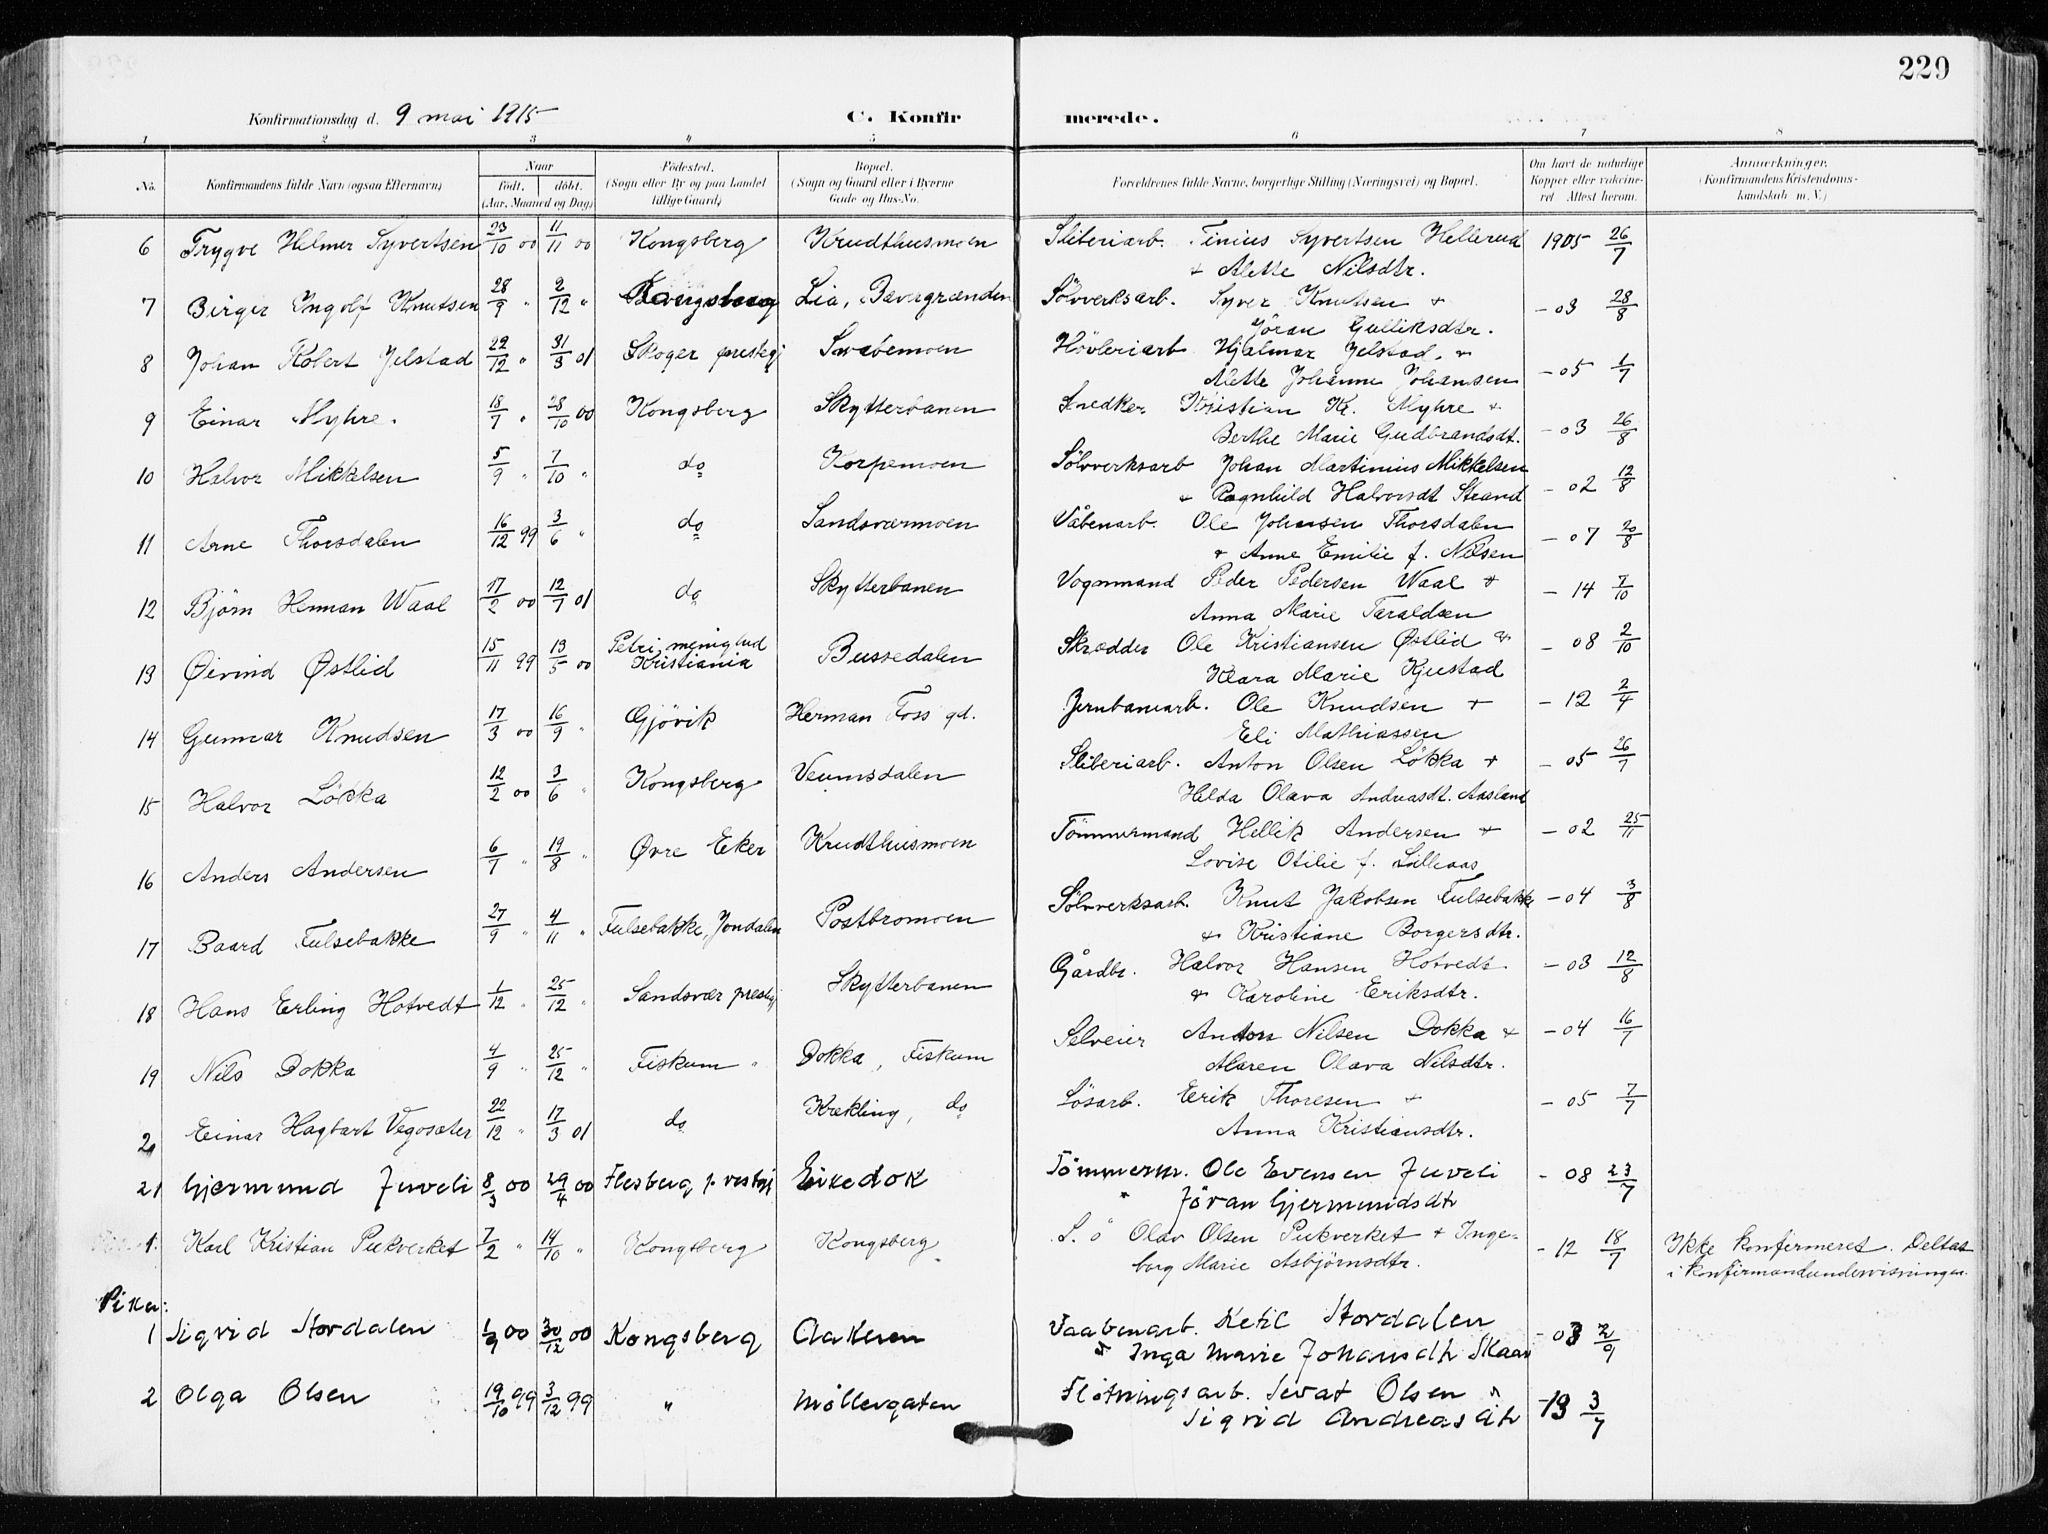 229
Konfirmationsdag d. 9 mai 1915
C. Konfirmerede.
1 2 3 4 5 6 7 8
No. Konfirmandens fulde Navn (ogsaa Efternavn) Naar født. døbt. (Aar, Maaned og Dag) Fødested. (Sogn eller By og paa Landet tillige Gaard) Bopæl. (Sogn og Gaard eller i Byerne Gade og Hus-No. Forældrenes fulde Navne, borgerlige Stilling (Næringsvei) og Bopæl. Om havt de naturlige Kopper eller vakcineret Attest herom. Anmerkninger. (Konfirmandens Kristendomskundskab m. V.)
6 Trygve Helmer Syvertsen 23/10 00 11/11 00 Kongsberg Krudthusmoen Sliberiarb. Tinius Syvertsen Hellerud 1905 26/7
+ Alette Nilsdtr.
7 Birger Ingolf Knutsen 28/9 " 2/12 " Kongsberg Lia, Bævergrænden Sölvverksarb. Syver Knutsen + - 03 28/8
Jöran Gulliksdtr.
8 Johan Robert Jelstad 22/12 " 31/3 01 Skoger prestegj Svabemoen Hövleriarb Hjalmar Jelstad + - 05 1/7
Alette Johanne Johansen
9 Einar Myhre. 18/7 " 28/10 00 Kongsberg Skytterbanen Snedker Kristian Kr. Myhre + - 03 26/8
Berthe Marie Gudbrandsdt.
10 Halvor Mikkelsen 5/9 " 7/10 " do Korpemoen Sölvverksarb Johan Martinius Mikkelsen - 02 12/8
+ Ragnhild Halvorsdt Strand
11 Arne Thorsdalen 16/12 99 3/6 " do Sandsværmoen Våbenarb. Ole Johansen Thorsdalen - 07 20/8
+ Anne Emilie f. Nilsen
12 Björn Herman Waal 17/2 00 12/7 01 do Skytterbanen Vognmand Peder Pedersen Waal + - 14 7/10
Anna Marie Taraldsen
13 Øivind Østlid 15/11 99 13/5 00 Petri menighed Kristiania Bussedalen Skrædder Ole Kristiansen Østlid + - 08 2/10
Klara Marie Kjustad
14 Gunnar Knudsen 17/3 00 16/9 " Gjövik Herman Foss gd. Jernbanearb. Ole Knudsen + - 12 2/4
Eli Mathiassen
15 Halvor Lökka 12/2 00 3/6 " Kongsberg Veumsdalen Sliberiarb. Anton Olsen Lökka + - 05 26/7
Helda Olava Andreasdt. Aasland
16 Anders Andersen 6/7 " 19/8 " Øvre Eker Krudthusmoen Tömmermand Hellik Andersen + - 02 25/11
Lovise Otilie f. Lilleaas
17 Baard Fulsebakke 27/9 " 4/11 " Fulsebakke, Jondalen Postbromoen Sölvverksarb. Knut Jakobsen Fulsebakke - 04 3/8
+ Kristiane Borgersdtr.
18 Hans Erling Hotvedt 1/12 " 25/12 " Sandsvær prestgj Skytterbanen Gårdbr. Halvor Hansen Hotvedt - 03 12/8
+ Karoline Eriksdtr.
19 Nils Dokka 4/9 " 25/12 " Fiskum " Dokka, Fiskum Selveier Anton Nilsen Dokka + - 04 16/7
Maren Olava Nilsdtr.
20 Einar Hagbart Vegosæter 22/12 " 17/3 01 do Krekling, do Lösarb. Erik Thoresen + - 05 7/7
Anna Kristiansdtr.
21 Gjermund Juveli 8/3 00 29/4 00 Flesberg prestgj Eikedok Tömmerm. Ole Evensen Juveli - 08 23/7
" Jöran Gjermundsdtr
1. Karl Kristian Pukverket 7/2 " 14/10 " Kongsberg Kongsberg S. ö Olav Olsen Pukverket + Inge- - 12 18/7 Ikke konfirmeret. Deltat
borg Marie Asbjörnsdtr. i konfirmandundervisningen.
Piker:
1 Sigrid Stordalen 1/9 00 30/12 00 Kongsberg Aakeren Vaabenarb. Ketil Stordalen - 03 2/9
+ Inga Marie Johansdtr Skaar
2 Olga Olsen 19/10 99 3/12 99 " Möllergaten Flötningsarb. Sevat Olsen + - 13 3/7
Sigrid Andreasdtr